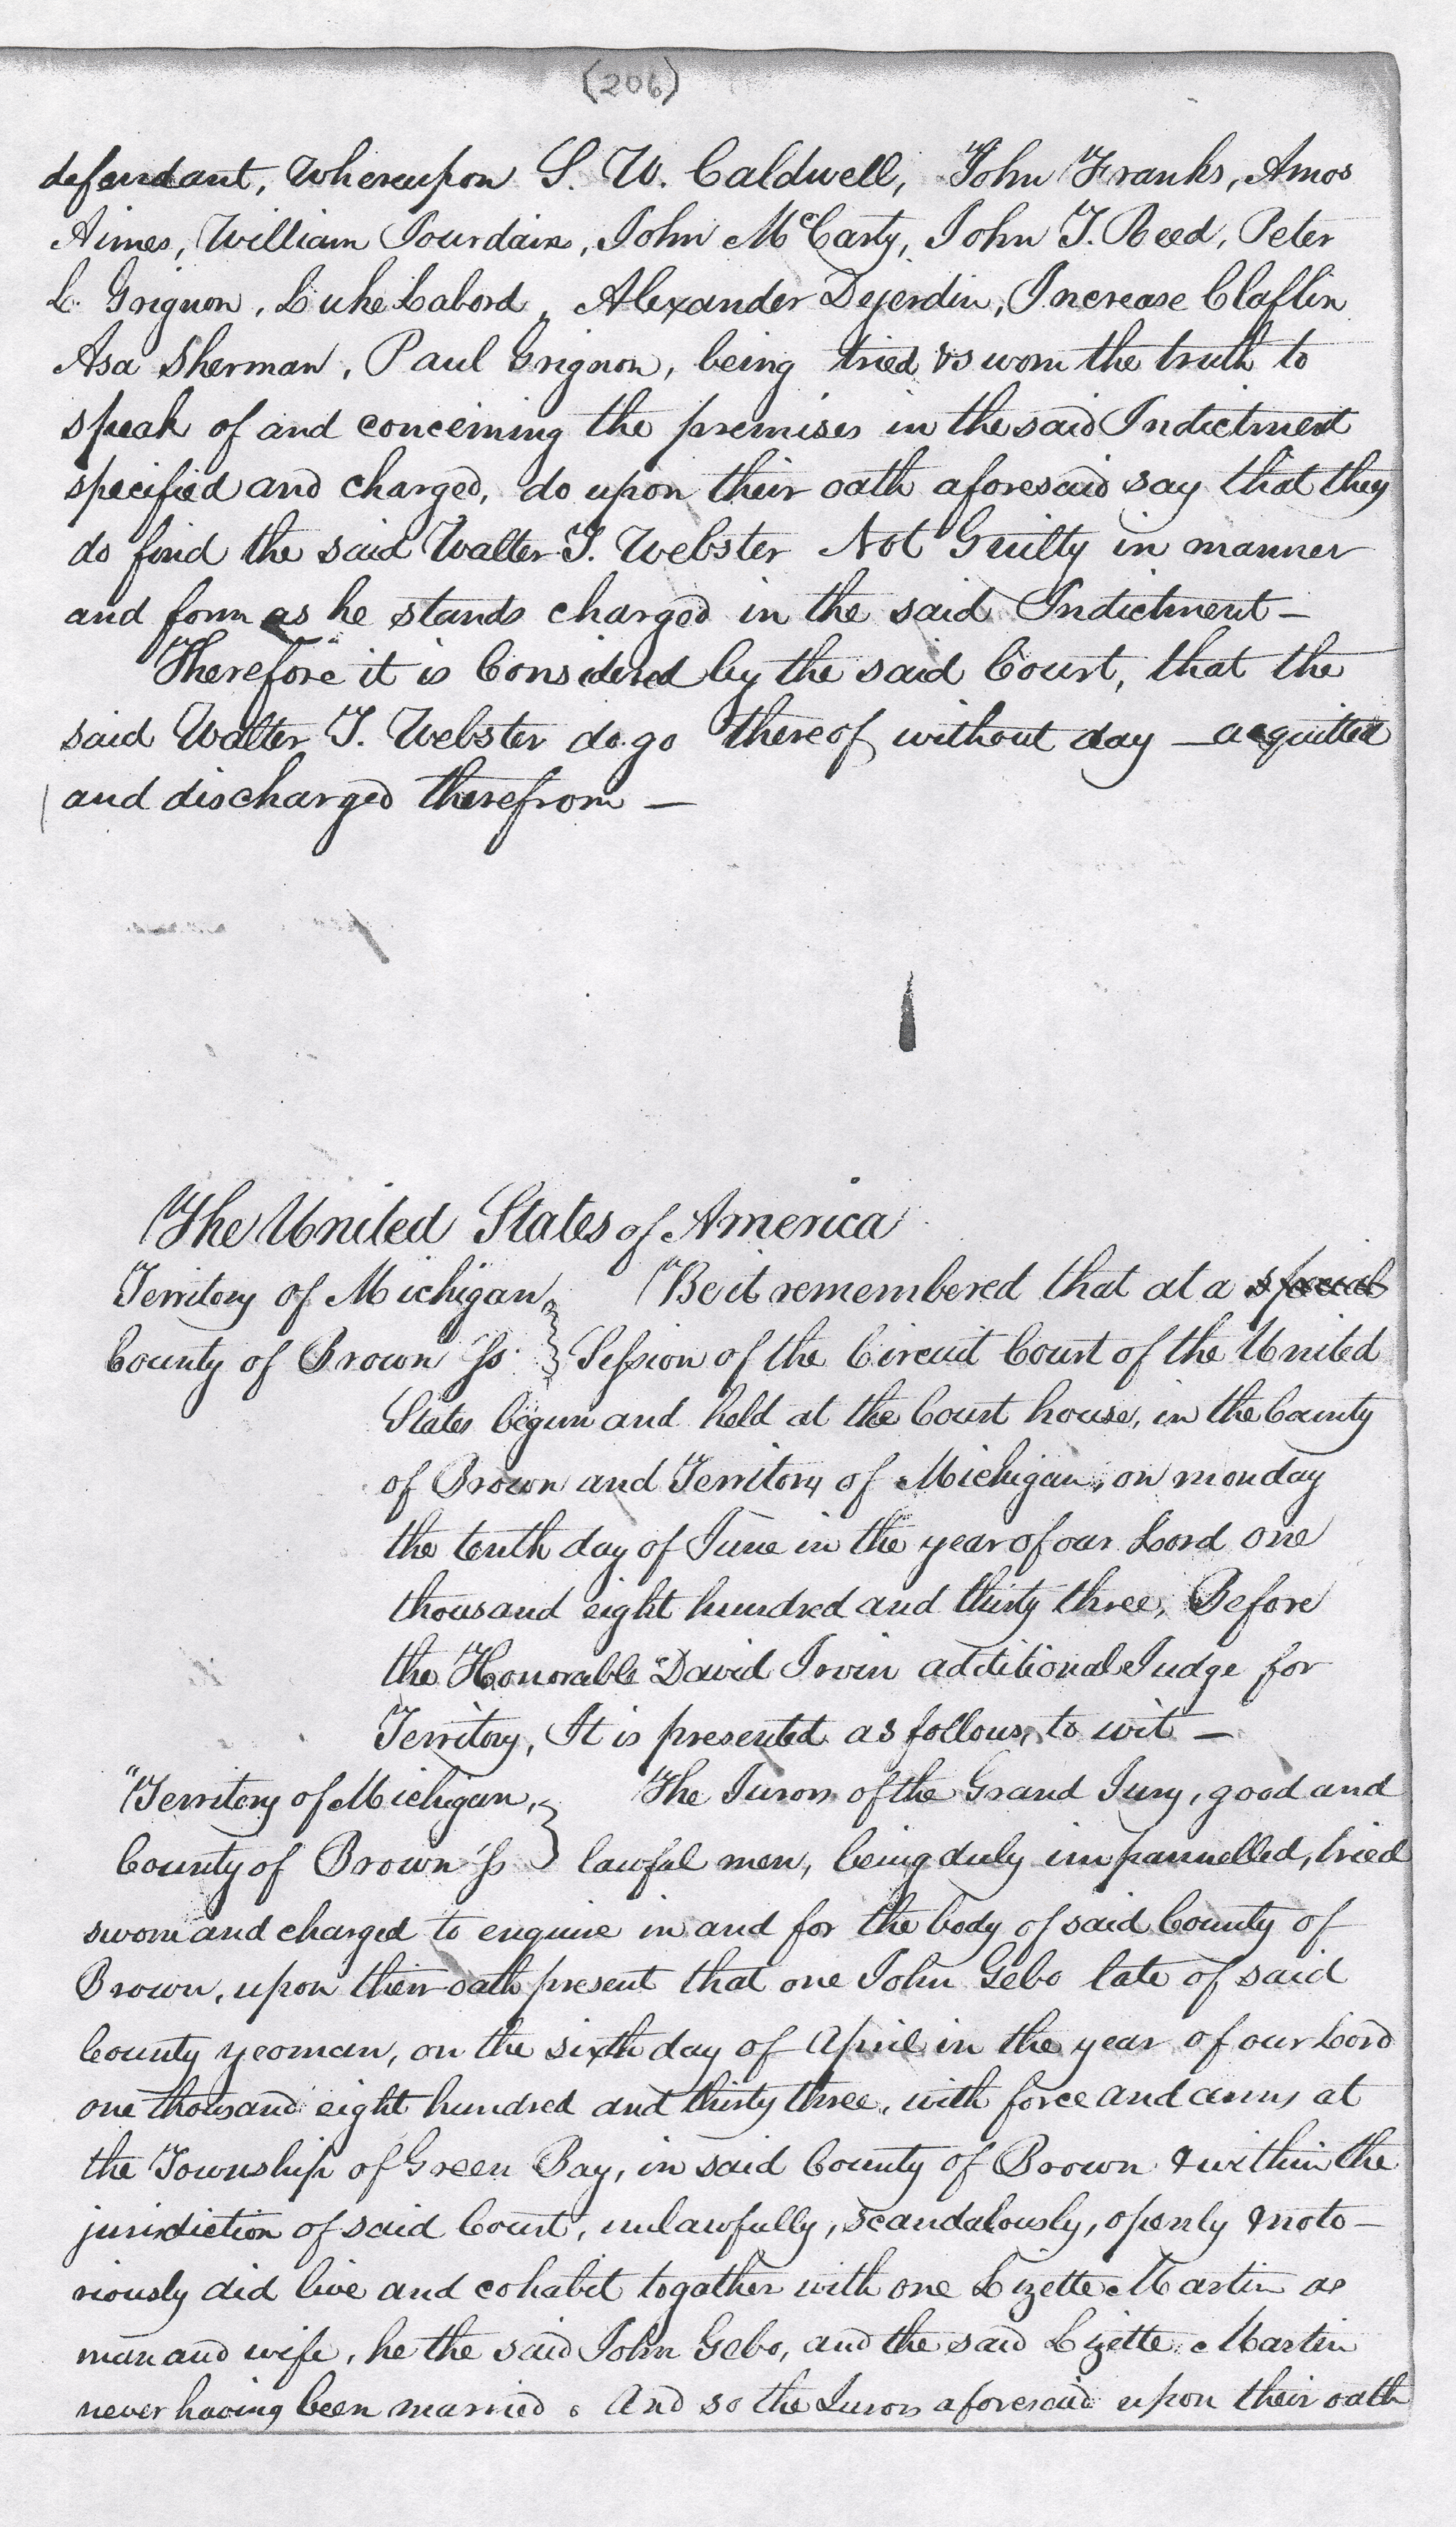 (206)
defendant, Whereupon S. W. Caldwell, John Franks, Amos
Aimes, William Jourdain, John McCarty, John T. Reed, Peter
L. Grignon, Luke Labord, Alexander Dejerdin, Increase Claflin
Asa Sherman, Paul Grignon, being tried & sworn the truth to
speak of and concerning the premises in the said Indictment
specified and charged, do upon their oath aforesaid say that they
do find the said Walter T. Webster Not Guilty in manner
and form as he stands charged in the said Indictment —
Therefore it is Considered by the said Court, that the
said Walter T. Webster do go thereof without day — acquitted
and discharged therefrom —
The United States of America
Territory of Michigan,
County of Brown Ss.
Be it remembered that at a special
Session of the Circuit Court of the United
States begun and held at the Court house, in the County
of Brown and Territory of Michigan, on monday
the tenth day of June in the year of our Lord one
thousand eight hundred and thirty three, Before
the Honorable David Irvin additional Judge for
Territory, It is presented as follows, to wit —
"Territory of Michigan,
County of Brown Ss
The Jurors of the Grand Jury, good and
lawful men, being duly impannelled, tried
sworn and charged to enquire in and for the body of said County of
Brown, upon their oath present that one John Gebo late of said
County yeoman, on the sixth day of April in the year of our Lord
one thousand eight hundred and thirty three, with force and arms at
the Township of Green Bay, in said County of Brown & within the
jurisdiction of said Court, unlawfully, scandalously, openly & noto—
riously did live and cohabit togather with one Lizette Martin as
man and wife, he the said John Gebo, and the said Lizette Martin
never having been married. And so the Jurors aforesaid upon their oath